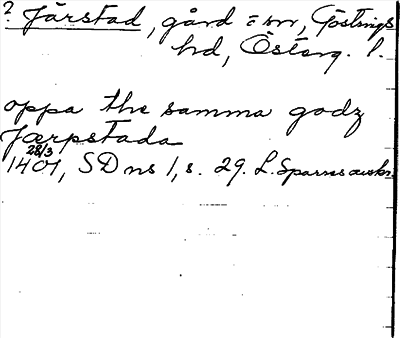 ? Järstad, gård = nr, Göstrings
hd, Österg. l.
oppa the samma godz
Jærpstada
28/3
1401, SD ns 1, s. 29. L. Sparres avskr.